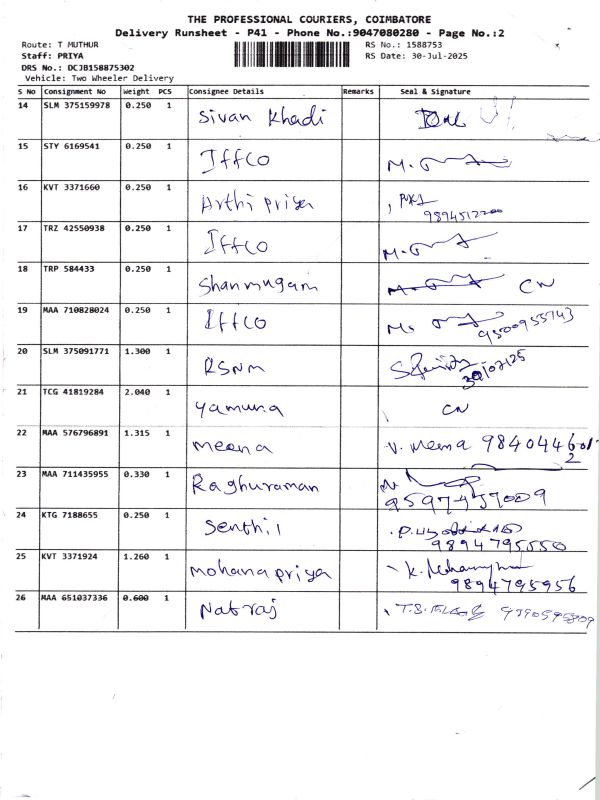 THE PROFESSIONAL COURIERS, COIMBATORE
Delivery Runsheet - P41 - Phone No.:9047080280 - Page No.:2
Route: T MUTHUR RS No.: 1588753
Staff: PRIYA RS Date: 30-Jul-2025
DRS No.: DCJB158875302
Vehicle: Two Wheeler Delivery
S No Consignment No Weight PCS Consignee Details Remarks Seal & Signature
14 SLM 375159978 0.250 1 Sivan Khadi
15 STY 6169541 0.250 1 Iffco
16 KVT 3371660 0.250 1 Arthi priya
17 TRZ 42550938 0.250 1 Iffco
18 TRP 584433 0.250 1 Shanmugam CN
19 MAA 710828024 0.250 1 Iffco 9500955743
20 SLM 375091771 1.300 1 RSNM 30/07/25
21 TCG 41819284 2.040 1 Yamuna CN
22 MAA 576796891 1.315 1 meena V. Meena
23 MAA 711435955 0.330 1 Raghuraman
24 KTG 7188655 0.250 1 Senthil 9894795550
25 KVT 3371924 1.260 1 mohana priya 9894795956
26 MAA 651037336 0.600 1 Natraj